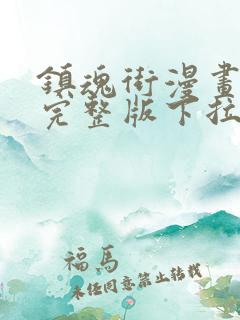 鎮魂街漫畫
完整版下拉
福馬
未任同意禁止轉載